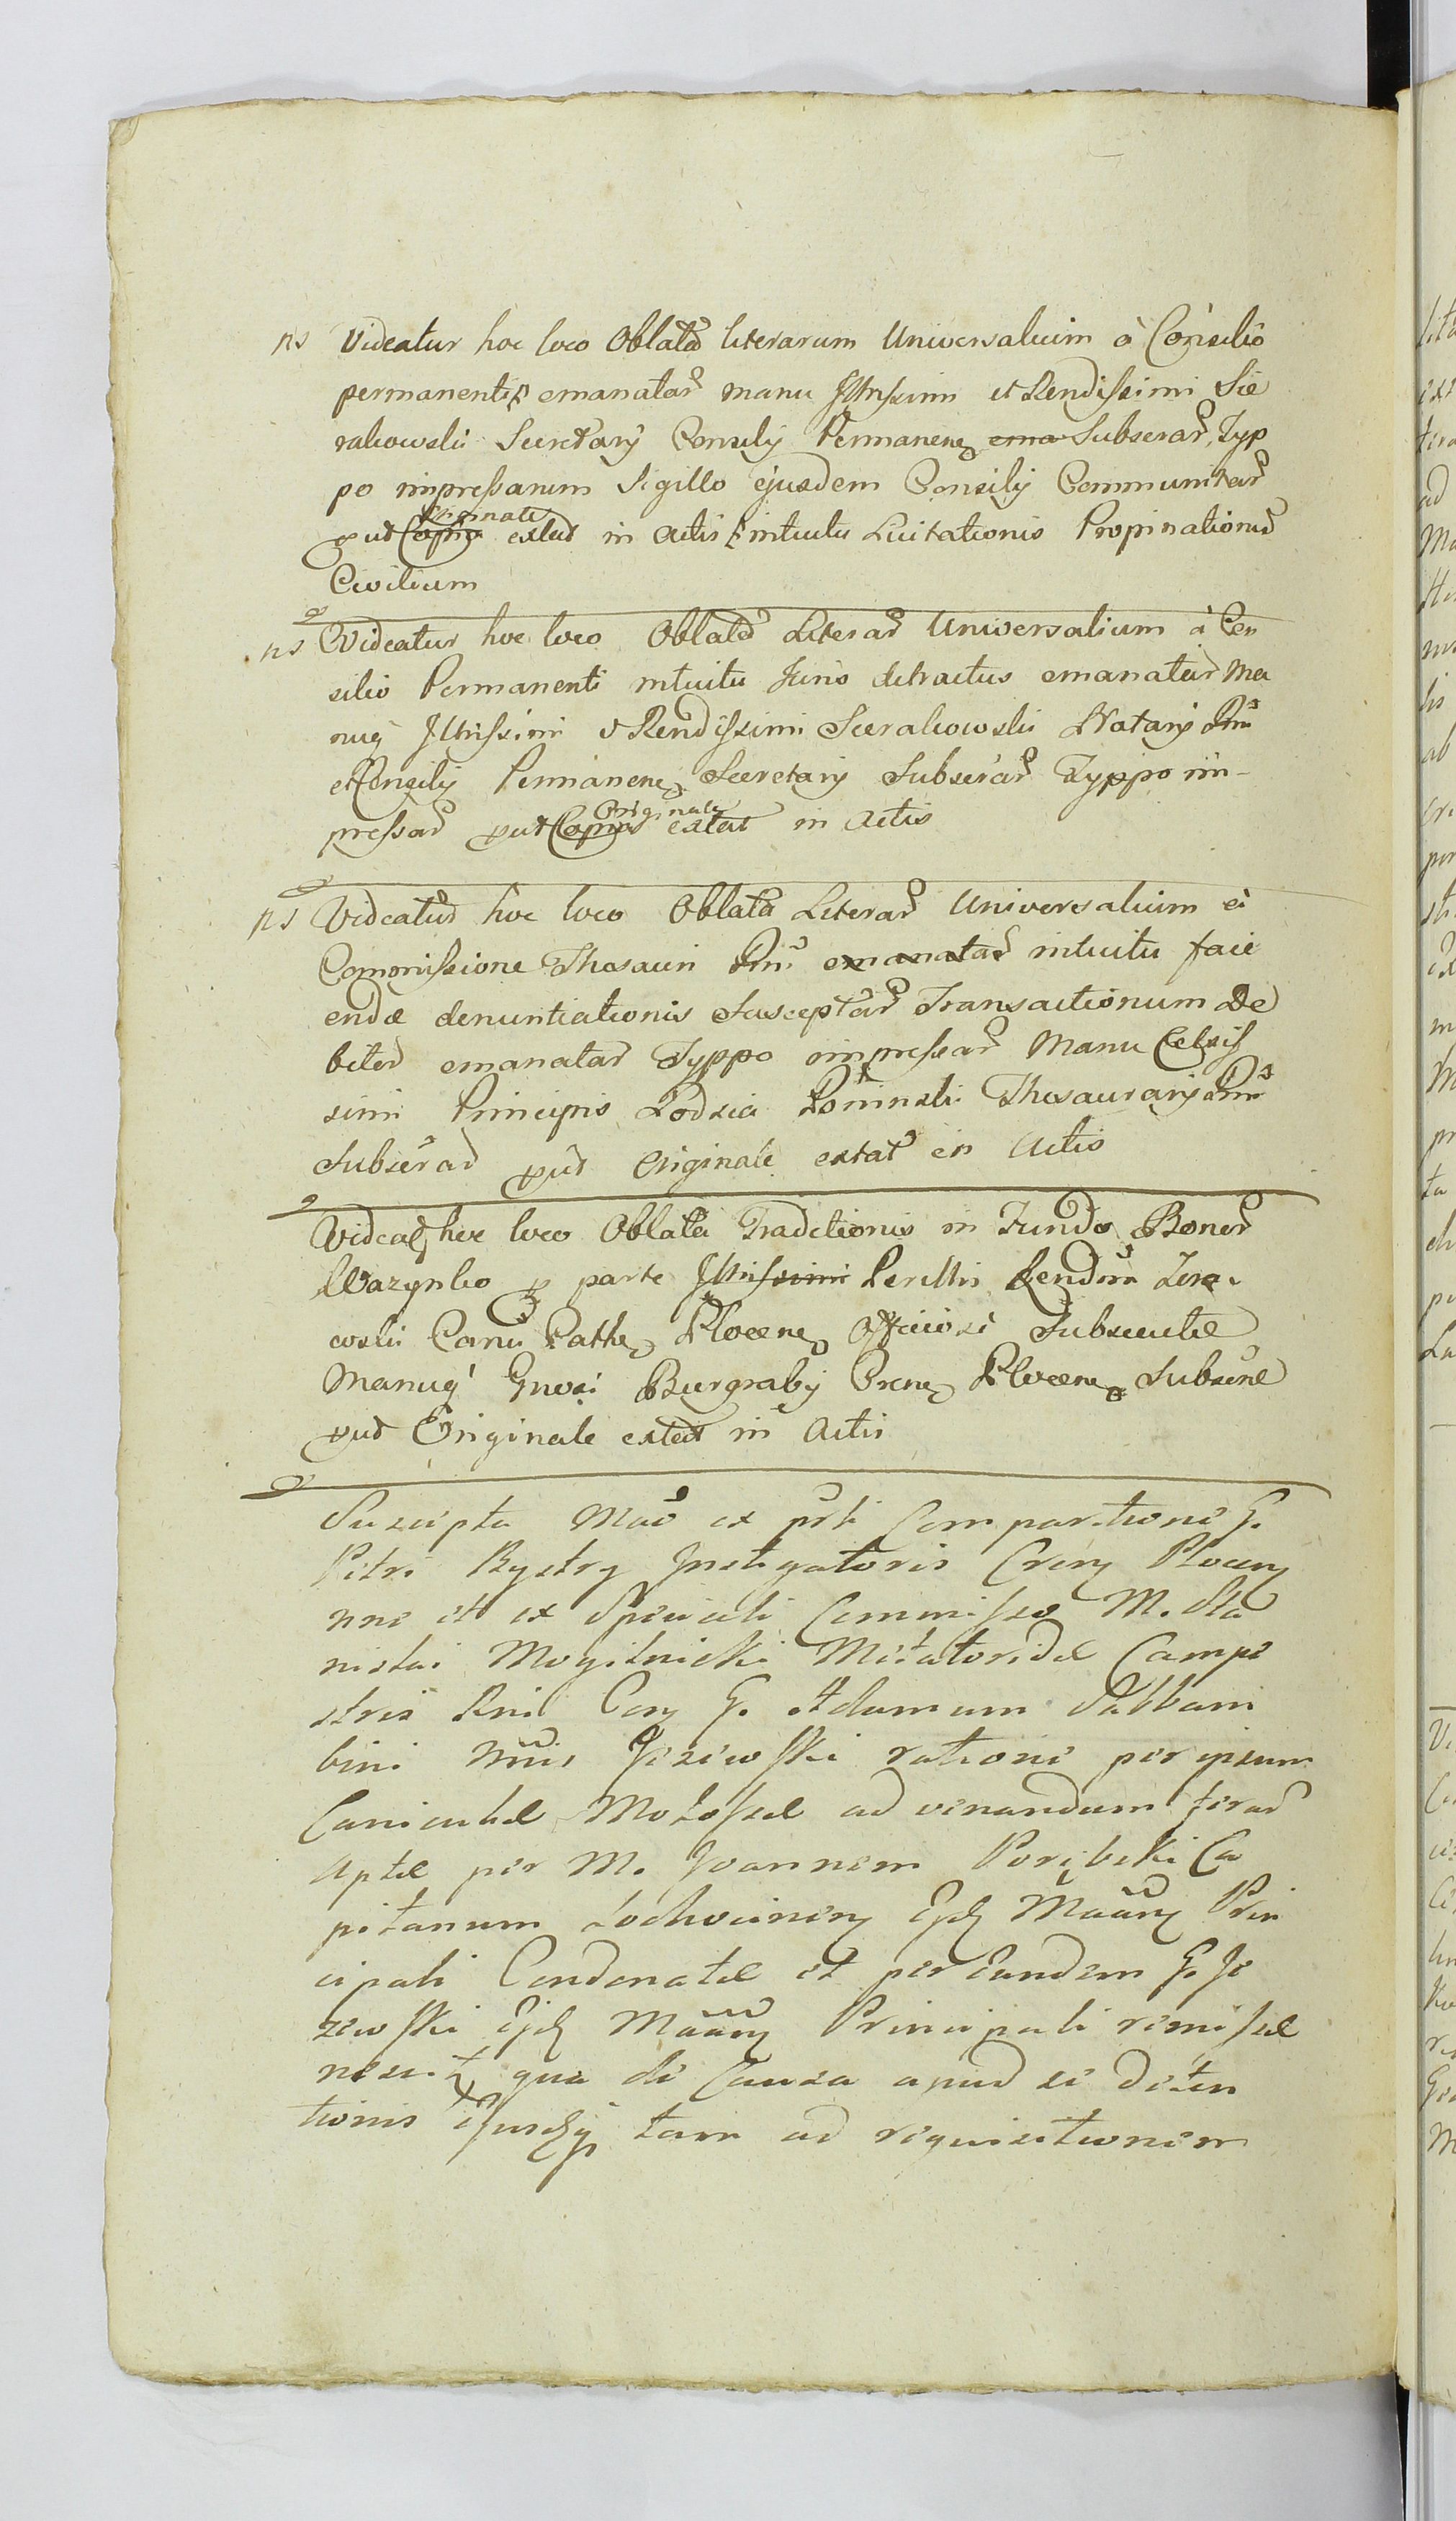 ns Videatur hoc loco Oblata literarum Universalium à Consilio
permanenti emanatar manu Illrissimi et Rendissimi Sie
rakowski Secretarÿ Consilÿ Permanen ema Subscrar, Typ
po impressarum Sigillo ejusdem Consilÿ Communitar
put Copia Originale extat in Actis intuitu Licitationis Propinationis
Civilium
ns Videatur hoc loco Oblata Literar Universalium à Con
silio Permanenti intuitu Juris detractus emanatar Ma
nuq Illrissimi et Rendissimi Sierakowski Notarÿ Rni
et Consilÿ Permanen Secretarÿ Subscrar Typpo im-
pressar put Copia Originale extat in Actis
ns Videatur hoc loco Oblata Literar Universalium à
Commissione Thesauri Rni emanatar intuitu faci
endæ denuntiationis Susceptar Transactionum De
bitor emanatar Typpo impressar Manu Celsis
simi Principis Łodzia Poninski Thesaurarÿ Rni
Subscrar put Originale extat in Actis
Videat hoc loco Oblata Traditionis in Fundo Bonor
Wazynko p parte Illrissimi Perillris Rendm Zera
coski Canu Cathe Plocen Officiosi Subsecutæ
Manuq Gnosi Burgrabÿ Crcen Plocen Subscræ
put Originale extat in Actis
Suscipta Mao ex prsti Comparitione G.
Petri Bystry Instigatoris Plocen
nne et ex Speciali Commisso M. Sta
nislai Mogilnicki Metatoridæ Campe
stris Rni G. Adamum
bini Jezewski ratione per ipsum
Caniculæ Molossæ ad venandum ferar
Aptæ per M. Joannem Porębski Ca
pitanum Prin
cipali Condonatæ et per Eundem G. Je
zewski Principali remissæ
nescit qua de Causa apud se deten
tionis tam ad requisitionem